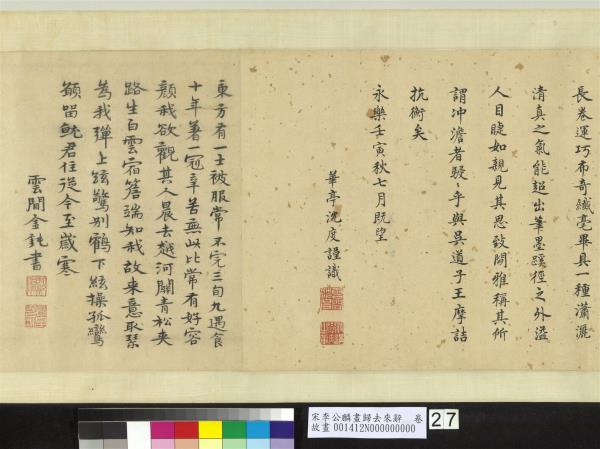 長卷運巧布奇纖毫畢具一種瀟灑
清真之氣能超出筆墨蹊徑之外溢
人目睫如親見其思致閒雅稱其所
謂沖澹者駸〻乎與吳道子王摩詰
抗衡矣
永樂壬寅秋七月既望
華亭沈度謹識
東方有一士被服常不完三旬九遇食
十年著一冠辛苦無此比常有好容
顏我欲觀其人晨去越河關青松夾
路生白雲宿簷端知我故來意取琴
為我彈上絃驚別鶴下絃操孤鸞
願留就君住從今至歲寒
雲間金鈍書
宋李公麟畫歸去來辭 卷
故畫 001412N000000000
27